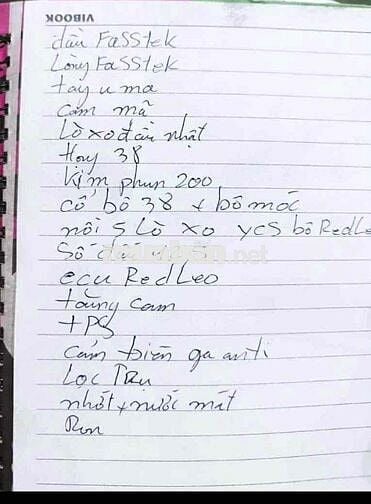 VIBOOK
dầu FaSStek
Lòng FaSStek
tay u ma
cam mã
Lò xo đầu nhật
Họng 38
Kim phun 200
cổ bô 38 + bô móc
nồi 5 Lò xo YCS bô RedLe
Số
.net
ecu RedLeo
tăng cam
TPS
cảm biến ga anti
Lọc
nhớt + nước mát